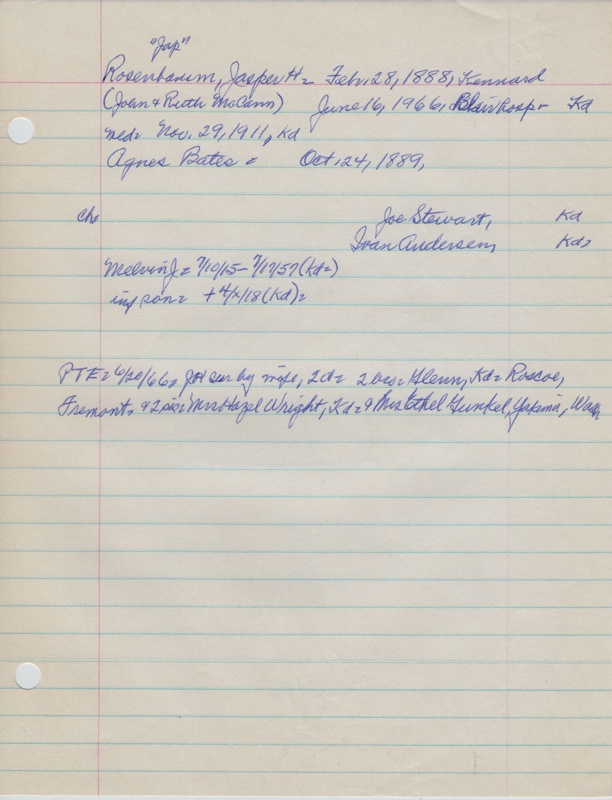 "Jap"
Rosenbaum, Jasper H = Feb. 28, 1888, Kennard
(John & Ruth McCann) June 16, 1966, Blair Hosp - Kd
med = Nov. 29, 1911, Kd
Agnes Bates = Oct. 24, 1889,
ch Joe Stewart, Kd
Ivan Andersen, Kd =
Melvin J = 7/10/15 - 7/17/57 (Kd =)
inf son = + 4/x/18 (Kd) =
PTE = 6/20/66 = sur by wife, 2d = 2 bro = Glenn, Kd = Roscoe,
Fremont, & 2 sis = Mrs Hazel Wright, Kd = & Mrs Ethel Gunkel, Yakima, Wash